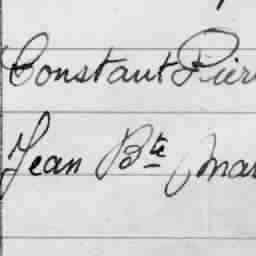 Constant Pier
Jean Bte Mar